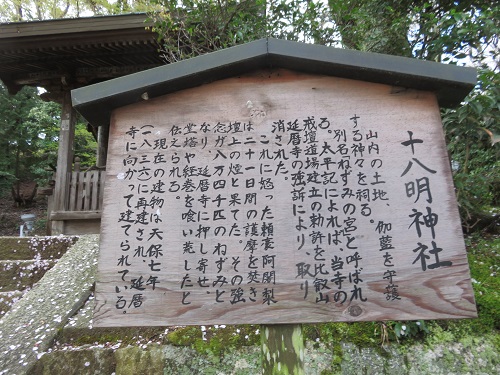 十八明神社
山内の土地、伽藍を守護
する神々を祀る。
別名ねずみの宮と呼ばれ
る。太平記によれば、当寺の
戒壇道場建立の勅許を比叡山
延暦寺の強訴により、取り
消された。
これに怒った頼豪阿闍梨
は二十一日間の護摩を焚き
壇上の煙と果てた。その強
念が八万四千匹のねずみと
なり、延暦寺に押し寄せ、
堂塔や経巻を喰い荒したと
伝えられる。
現在の建物は天保七年
（一八三六）に再建され、延暦
寺に向かって建てられている。